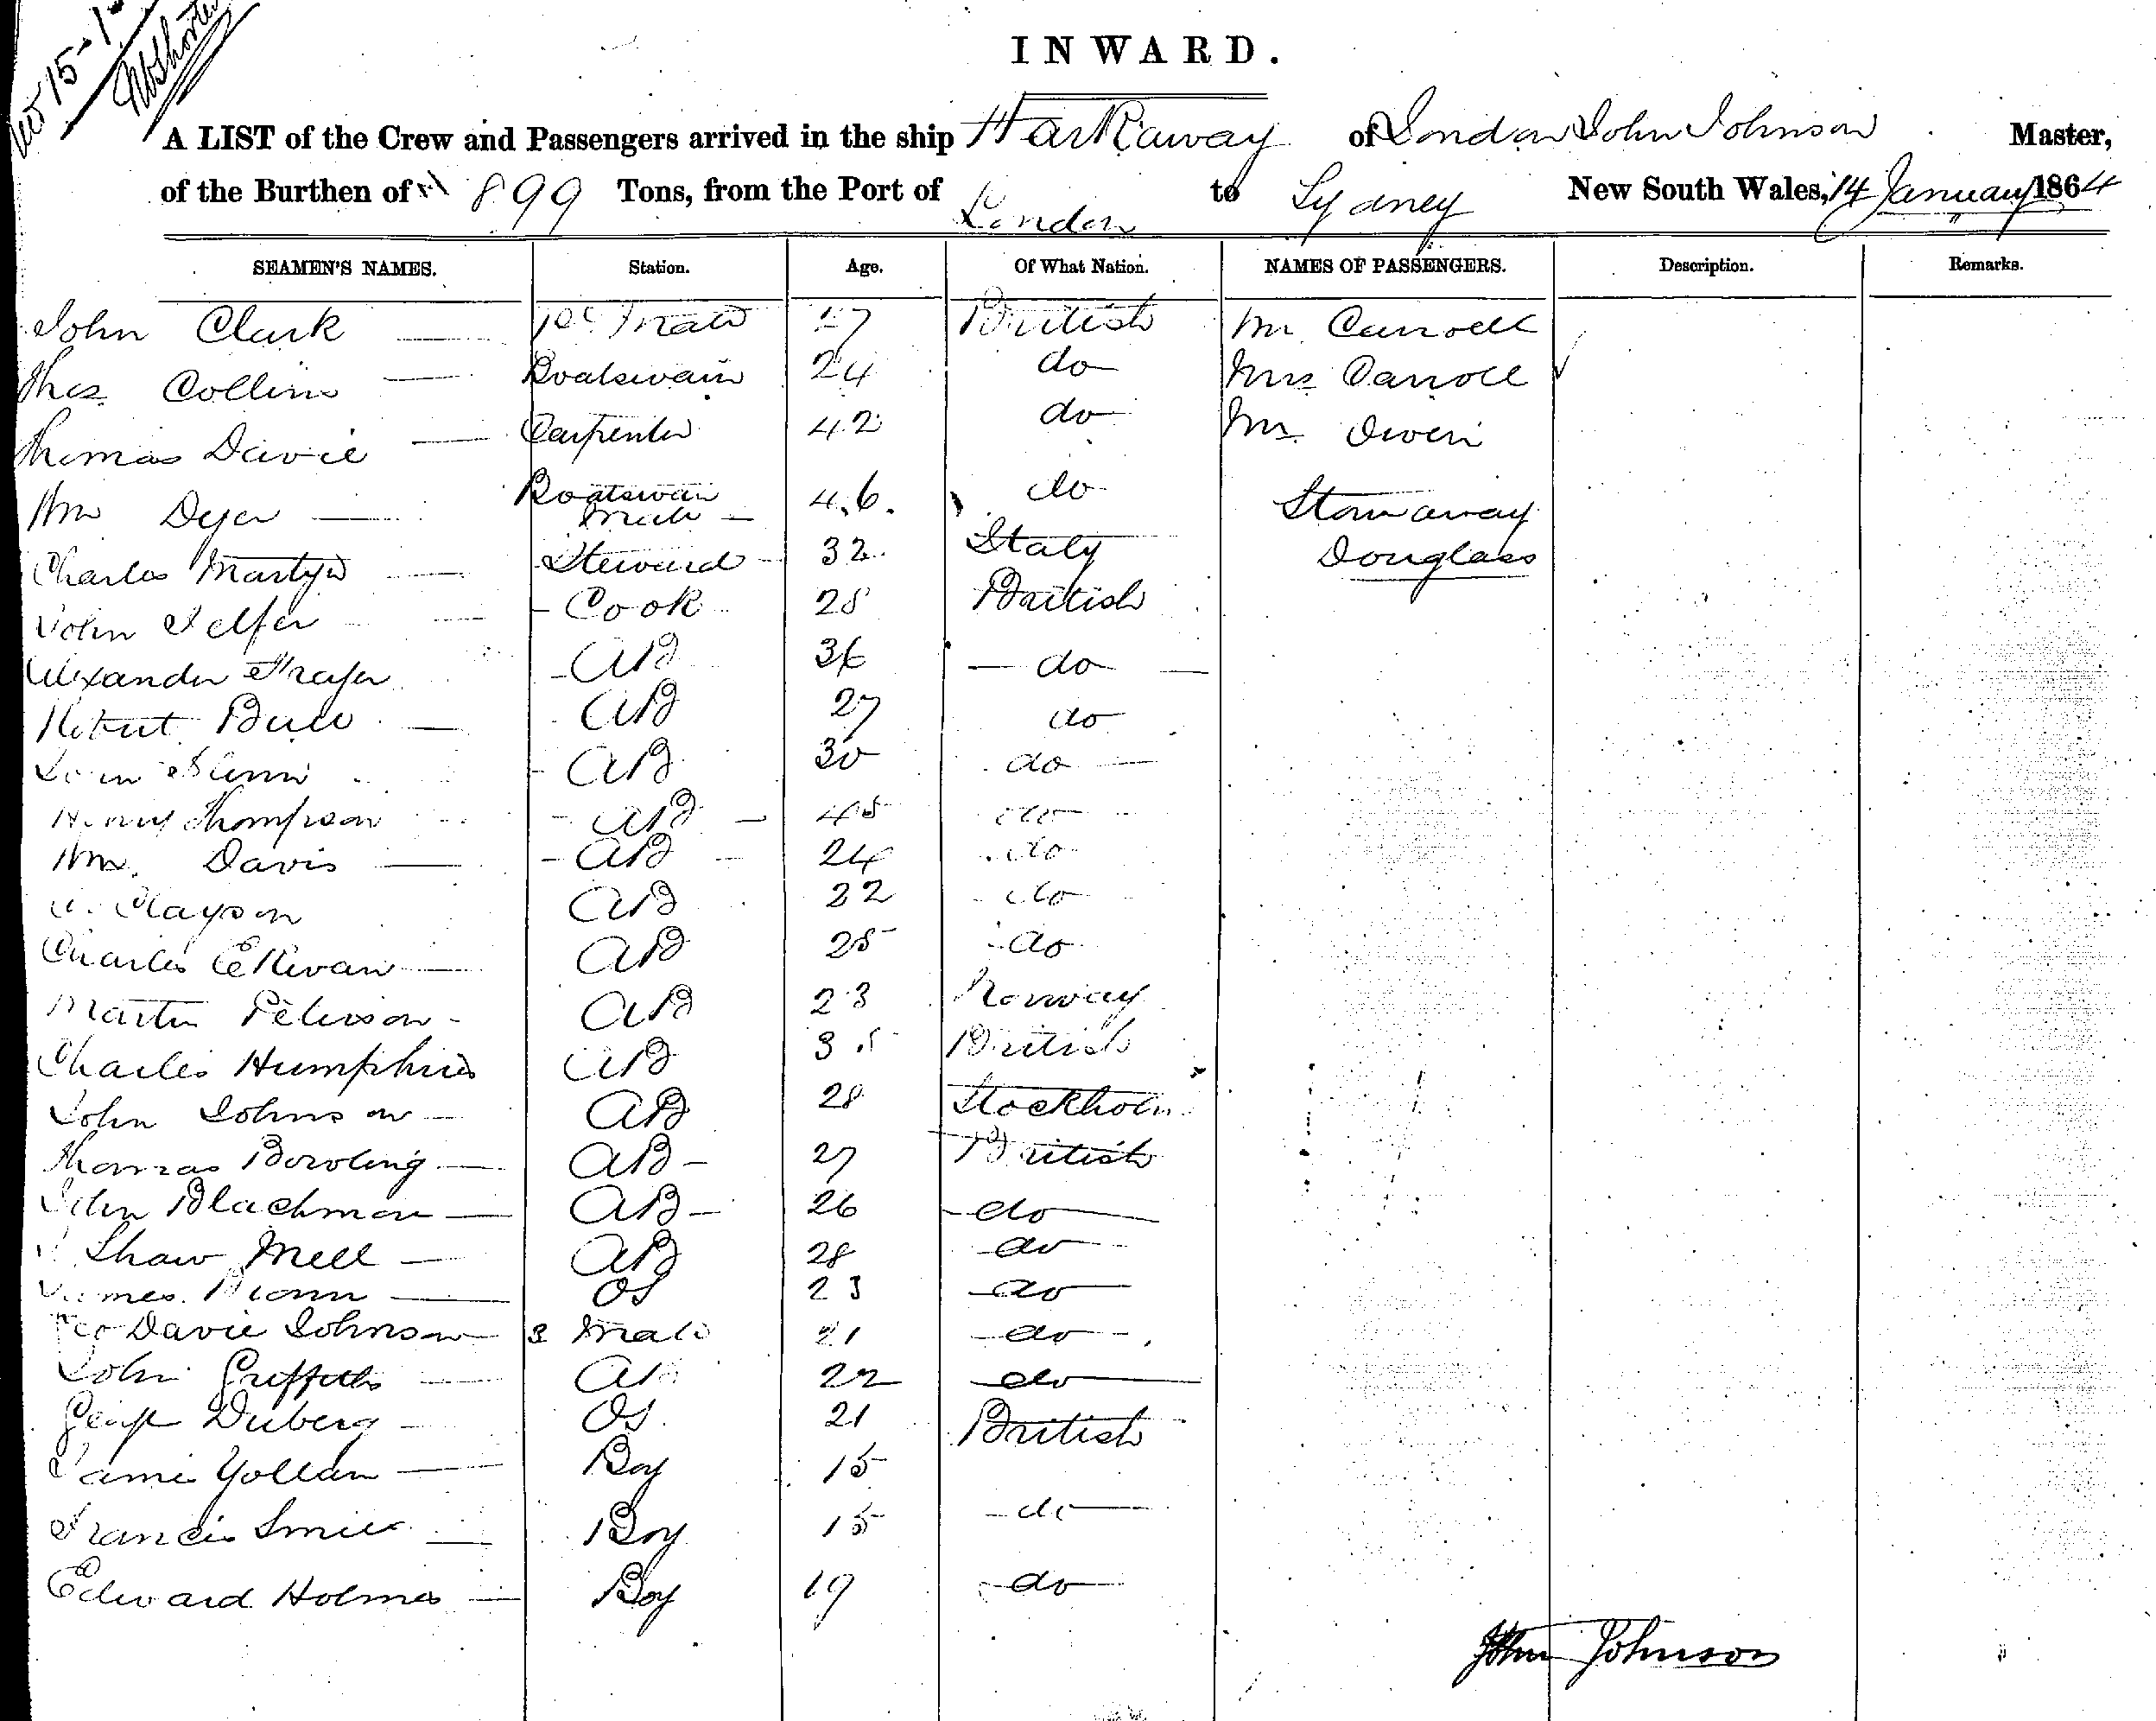 INWARD.
A LIST of the Crew and Passengers arrived in the ship Harkaway of London John Johnson Master,
of the Burthen of 899 Tons, from the Port of London to Sydney New South Wales, 14 January 1864
SEAMEN'S NAMES. Station. Age. Of What Nation. NAMES OF PASSENGERS. Description. Remarks.
John Clark 1st Mate 27 British Mr. Carroll
Thos. Collins Boatswain 24 do Mrs Carroll
Thomas Davie Carpenter 42 do Mr. Owen
Wm Dyer Boatswain Mate 46. do Stowaway
Charles Martyn Steward 32 Italy Douglass
John Telfer Cook 28 British
Alexander Fraser AB 36 do
Robert AB 27 do
AB 30 do
Henry Thompson AB 45 do
Wm. Davis AB 24 do
Clayson AB 22 do
Charles AB 25 do
Martin Peterson AB 23 Norway
Charles Humphries AB 35 British
John Johnson AB 28 Stockholm
Thomas Bowling AB 27 British
John Blachmore AB 26 do
Shaw Mell AB 28 do
James OS 23 do
Geo Davie Johnson 3 Mate 21 do
John Griffiths AB 22 do
George Duberg OS. 21 British
James Yollan Boy 15
Francis Boy 15 do
Edward Holmes Boy 19 do
John Johnson